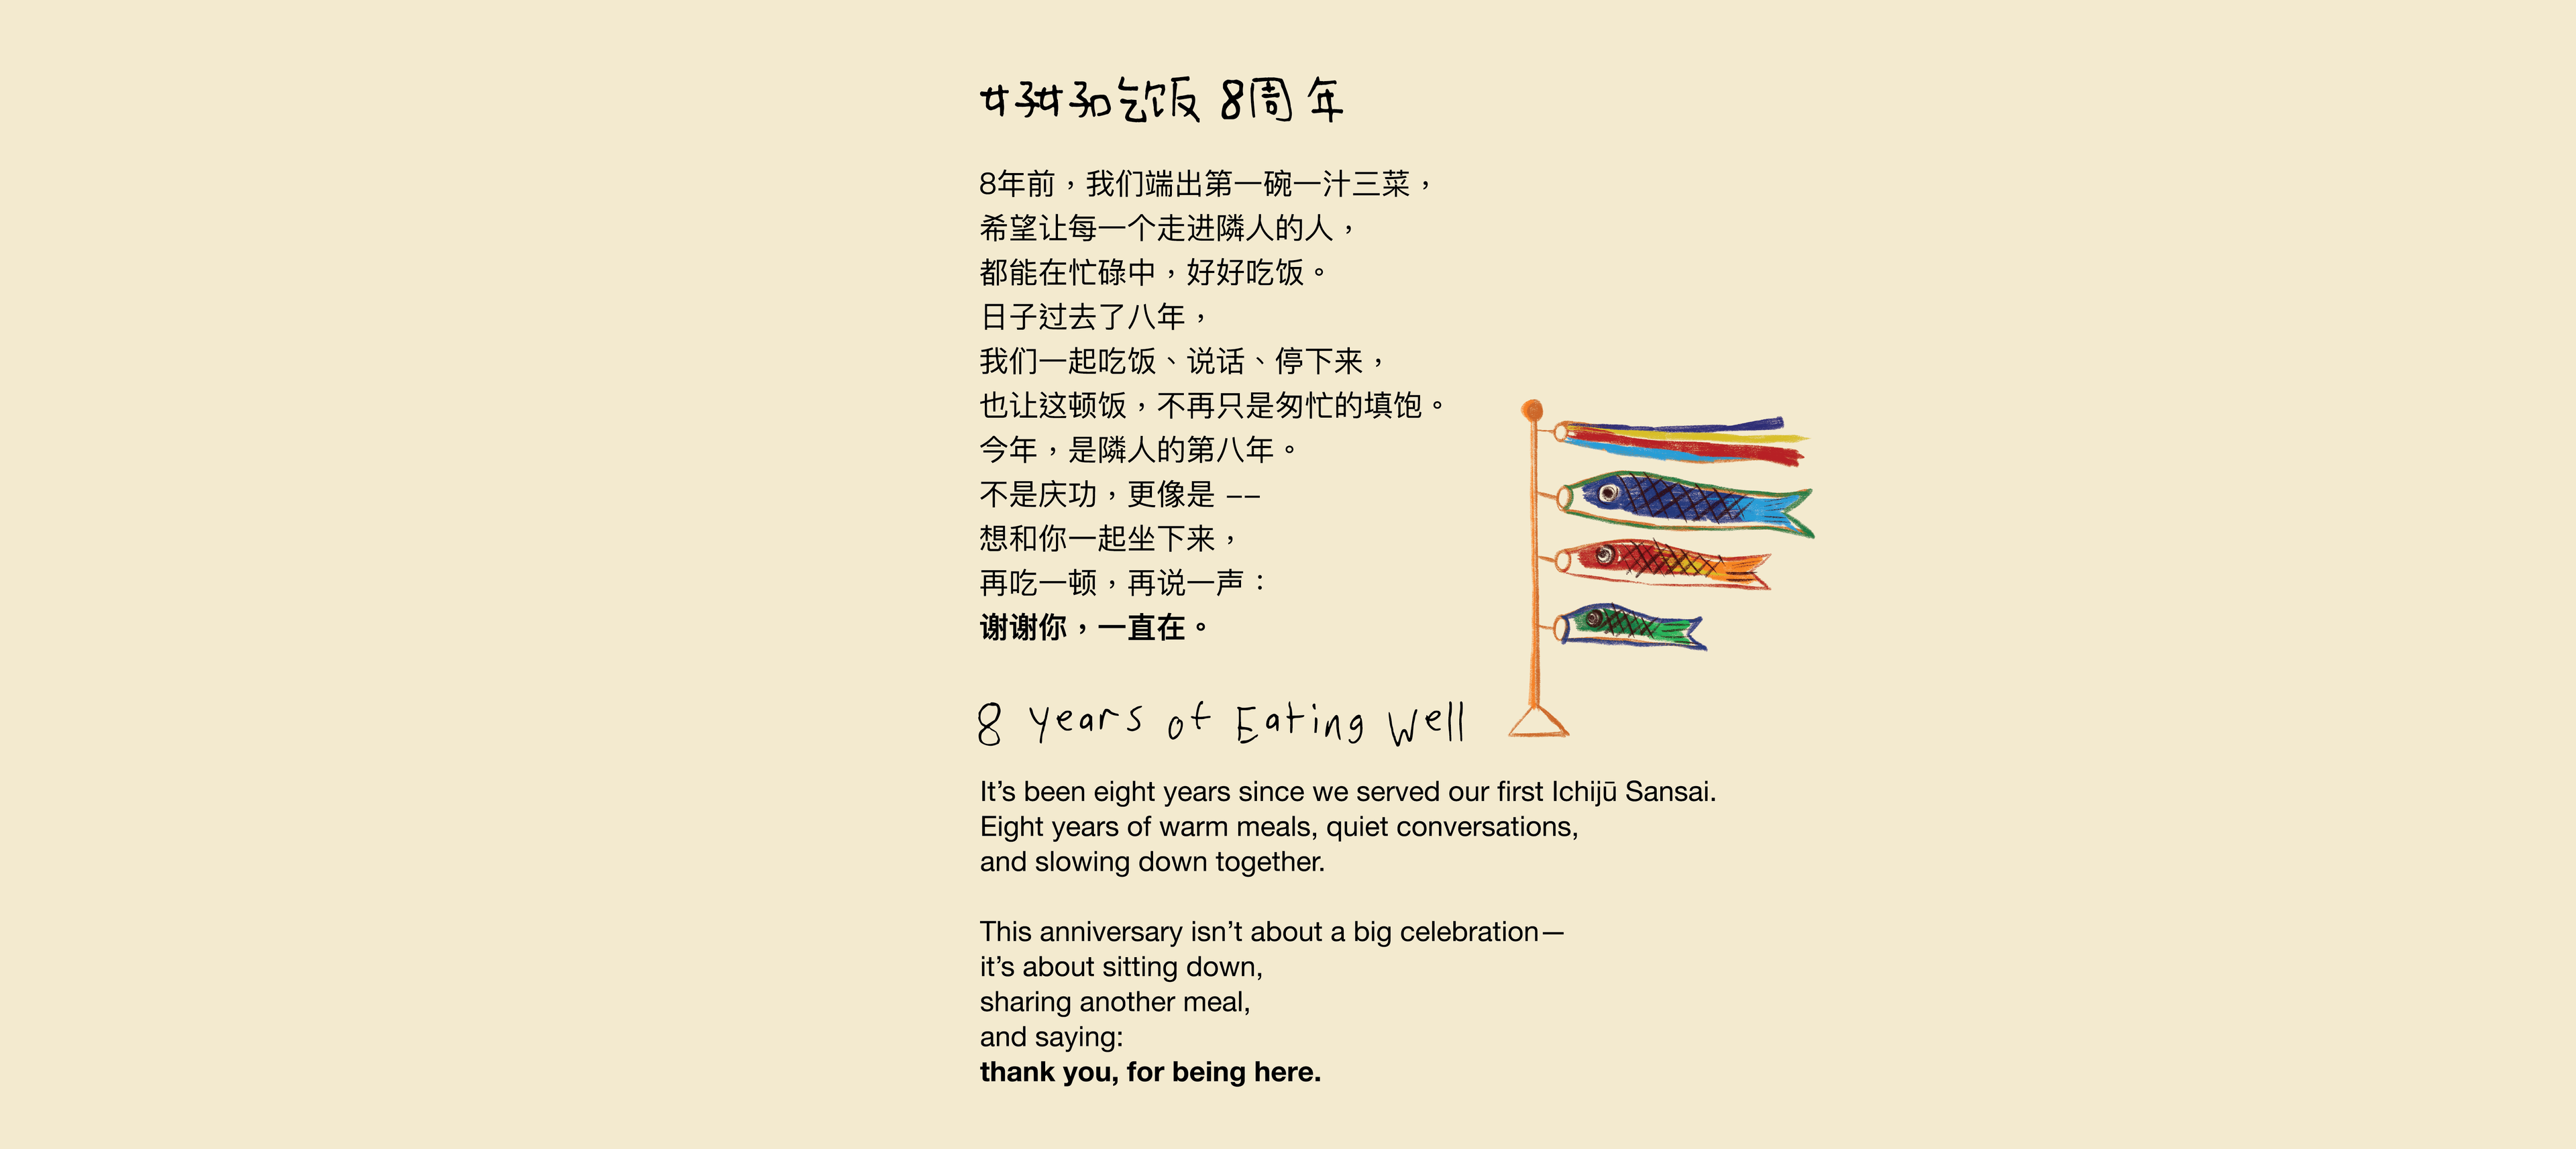 好好吃饭 8周年
8年前，我们端出第一碗一汁三菜，
希望让每一个走进隣人的人，
都能在忙碌中，好好吃饭。
日子过去了八年，
我们一起吃饭、说话、停下来，
也让这顿饭，不再只是匆忙的填饱。
今年，是隣人的第八年。
不是庆功，更像是 ––
想和你一起坐下来，
再吃一顿，再说一声：
谢谢你，一直在。
8 Years of Eating Well
It’s been eight years since we served our first Ichijū Sansai.
Eight years of warm meals, quiet conversations,
and slowing down together.
This anniversary isn’t about a big celebration—
it’s about sitting down,
sharing another meal,
and saying:
thank you, for being here.